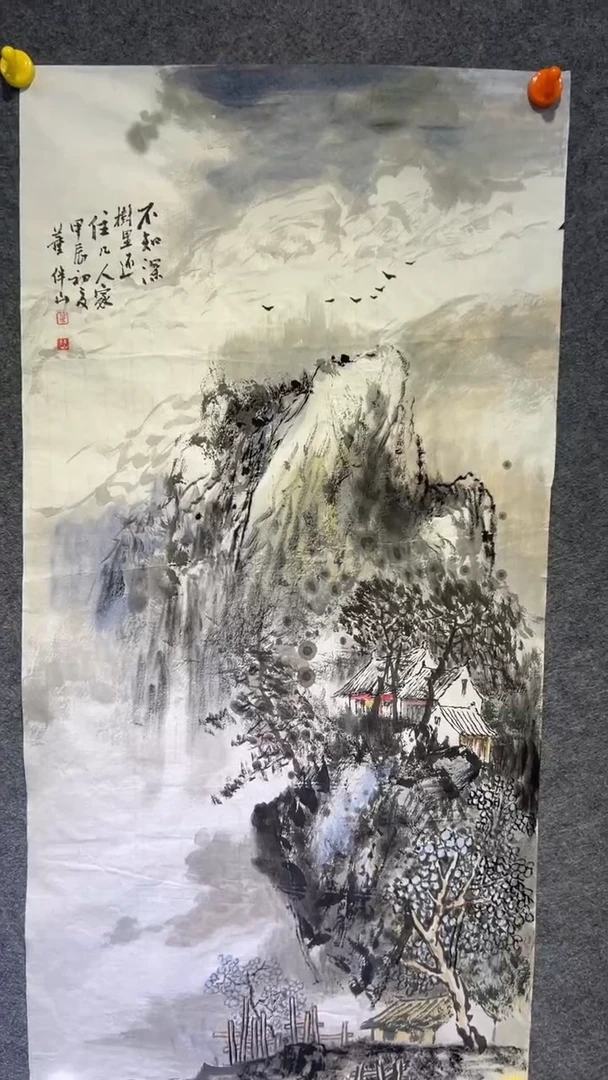 不知深
樹里還
住几人家
甲辰初夏
董伴山